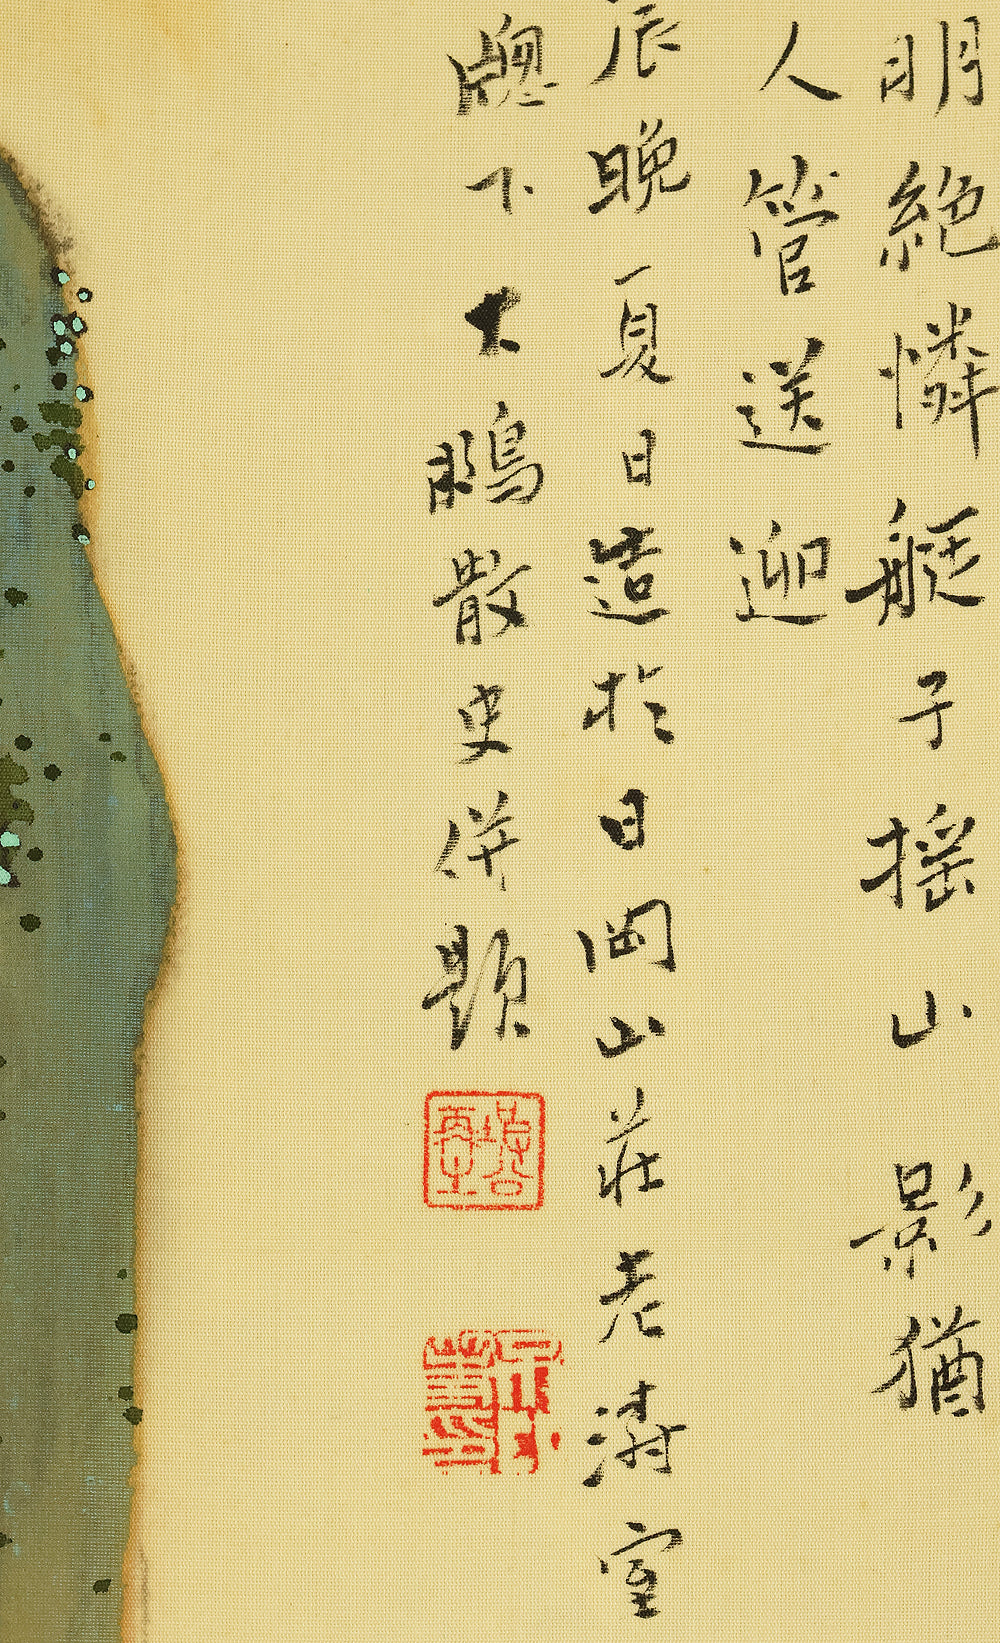 明絕憐艇子搖山影猶
人管送迎
辰晚夏日造於日岡山莊老濤室
牕下大鵬散史併題